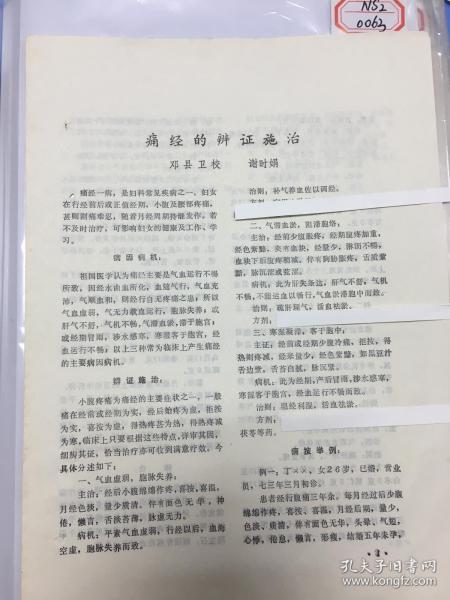 NS2
0063
痛经的辨证施治
邓县卫校 谢时娟
痛经一病，是妇科常见疾病之一，妇女
在行经前后或正值经期，小腹及腰部疼痛，
甚则剧痛难忍，随着月经周期持继发作，若
不及时治疗，可影响妇女的健康及工作、学
习。
病因病机：
祖国医学认为痛经主要是气血运行不畅
所致。因经水由血所化，血随气行，气血充
沛，气顺血和，则经行自无疼痛之患；所以
气血虚弱，气无力载血运行，胞脉失养；或
肝气不舒，气机不畅，气滞血淤，滞于胞宫；
或经期冒雨，涉水感寒，寒湿客于胞宫，经
血运行不畅；以上三种常为临床上产生痛经
的主要病因病机。
辨证施治：
小腹疼痛为痛经的主要症状之一，一般
痛在经前或经期为实，经后始疼为虚，拒按
为实，喜按为虚，得热疼甚为热，得热疼减
为寒，临床上只要根据这些特点，详审其因，
细病其证，恰当治疗亦可收到满意疗效。今
具体分述如下：
一、气血虚弱，胞脉失养：
主治：经后小腹绵绵作疼，喜按，喜温，
月经色淡，量少，质清，伴有面色无华，神
倦，懒言，舌淡苔薄，脉虚无力。
病机：平素气血虚弱，行经以后，血海
空虚，胞脉失养而致。
治则：补气养血佐以调经。
二、气滞血淤，阻滞胞络：
主治：经前少腹胀疼，经期腹疼加重，
经色紫黯，夹有血块，经量少，淋沥不畅，
血块下后腹疼稍减，伴有胸胁胀疼，舌质紫
黯，脉沉涩或弦涩。
病机：此为肝失条达，肝气不舒，气机
不畅，不能运血以畅行，气血淤滞胞中而致。
治则：疏肝理气，活血祛淤。
方剂：
三、寒湿凝滞，客于胞中：
主证，经前或经期少腹冷痛，拒按，得
热则疼减，经来量少，色紫黯，如黑豆汁
舌边紫，舌苔白腻，脉沉紧。
病机：此为经期，产后冒雨，涉水感寒，
寒湿客于胞宫，经血运行不畅而致。
治则：温经利湿，活血祛淤。
方剂：
茯苓等药。
病按举例：
例一：丁××，女26岁，已婚，营业
员，七三年三月初诊。
患者经行腹痛三年余，每月经过后少腹
绵绵作疼，喜按，喜温，月经后期，量少，
色淡、质清，伴有面色无华，头晕、气短，
心悸，倦怠，懒言，形瘦，结婚五年未孕，
孔夫子旧书网